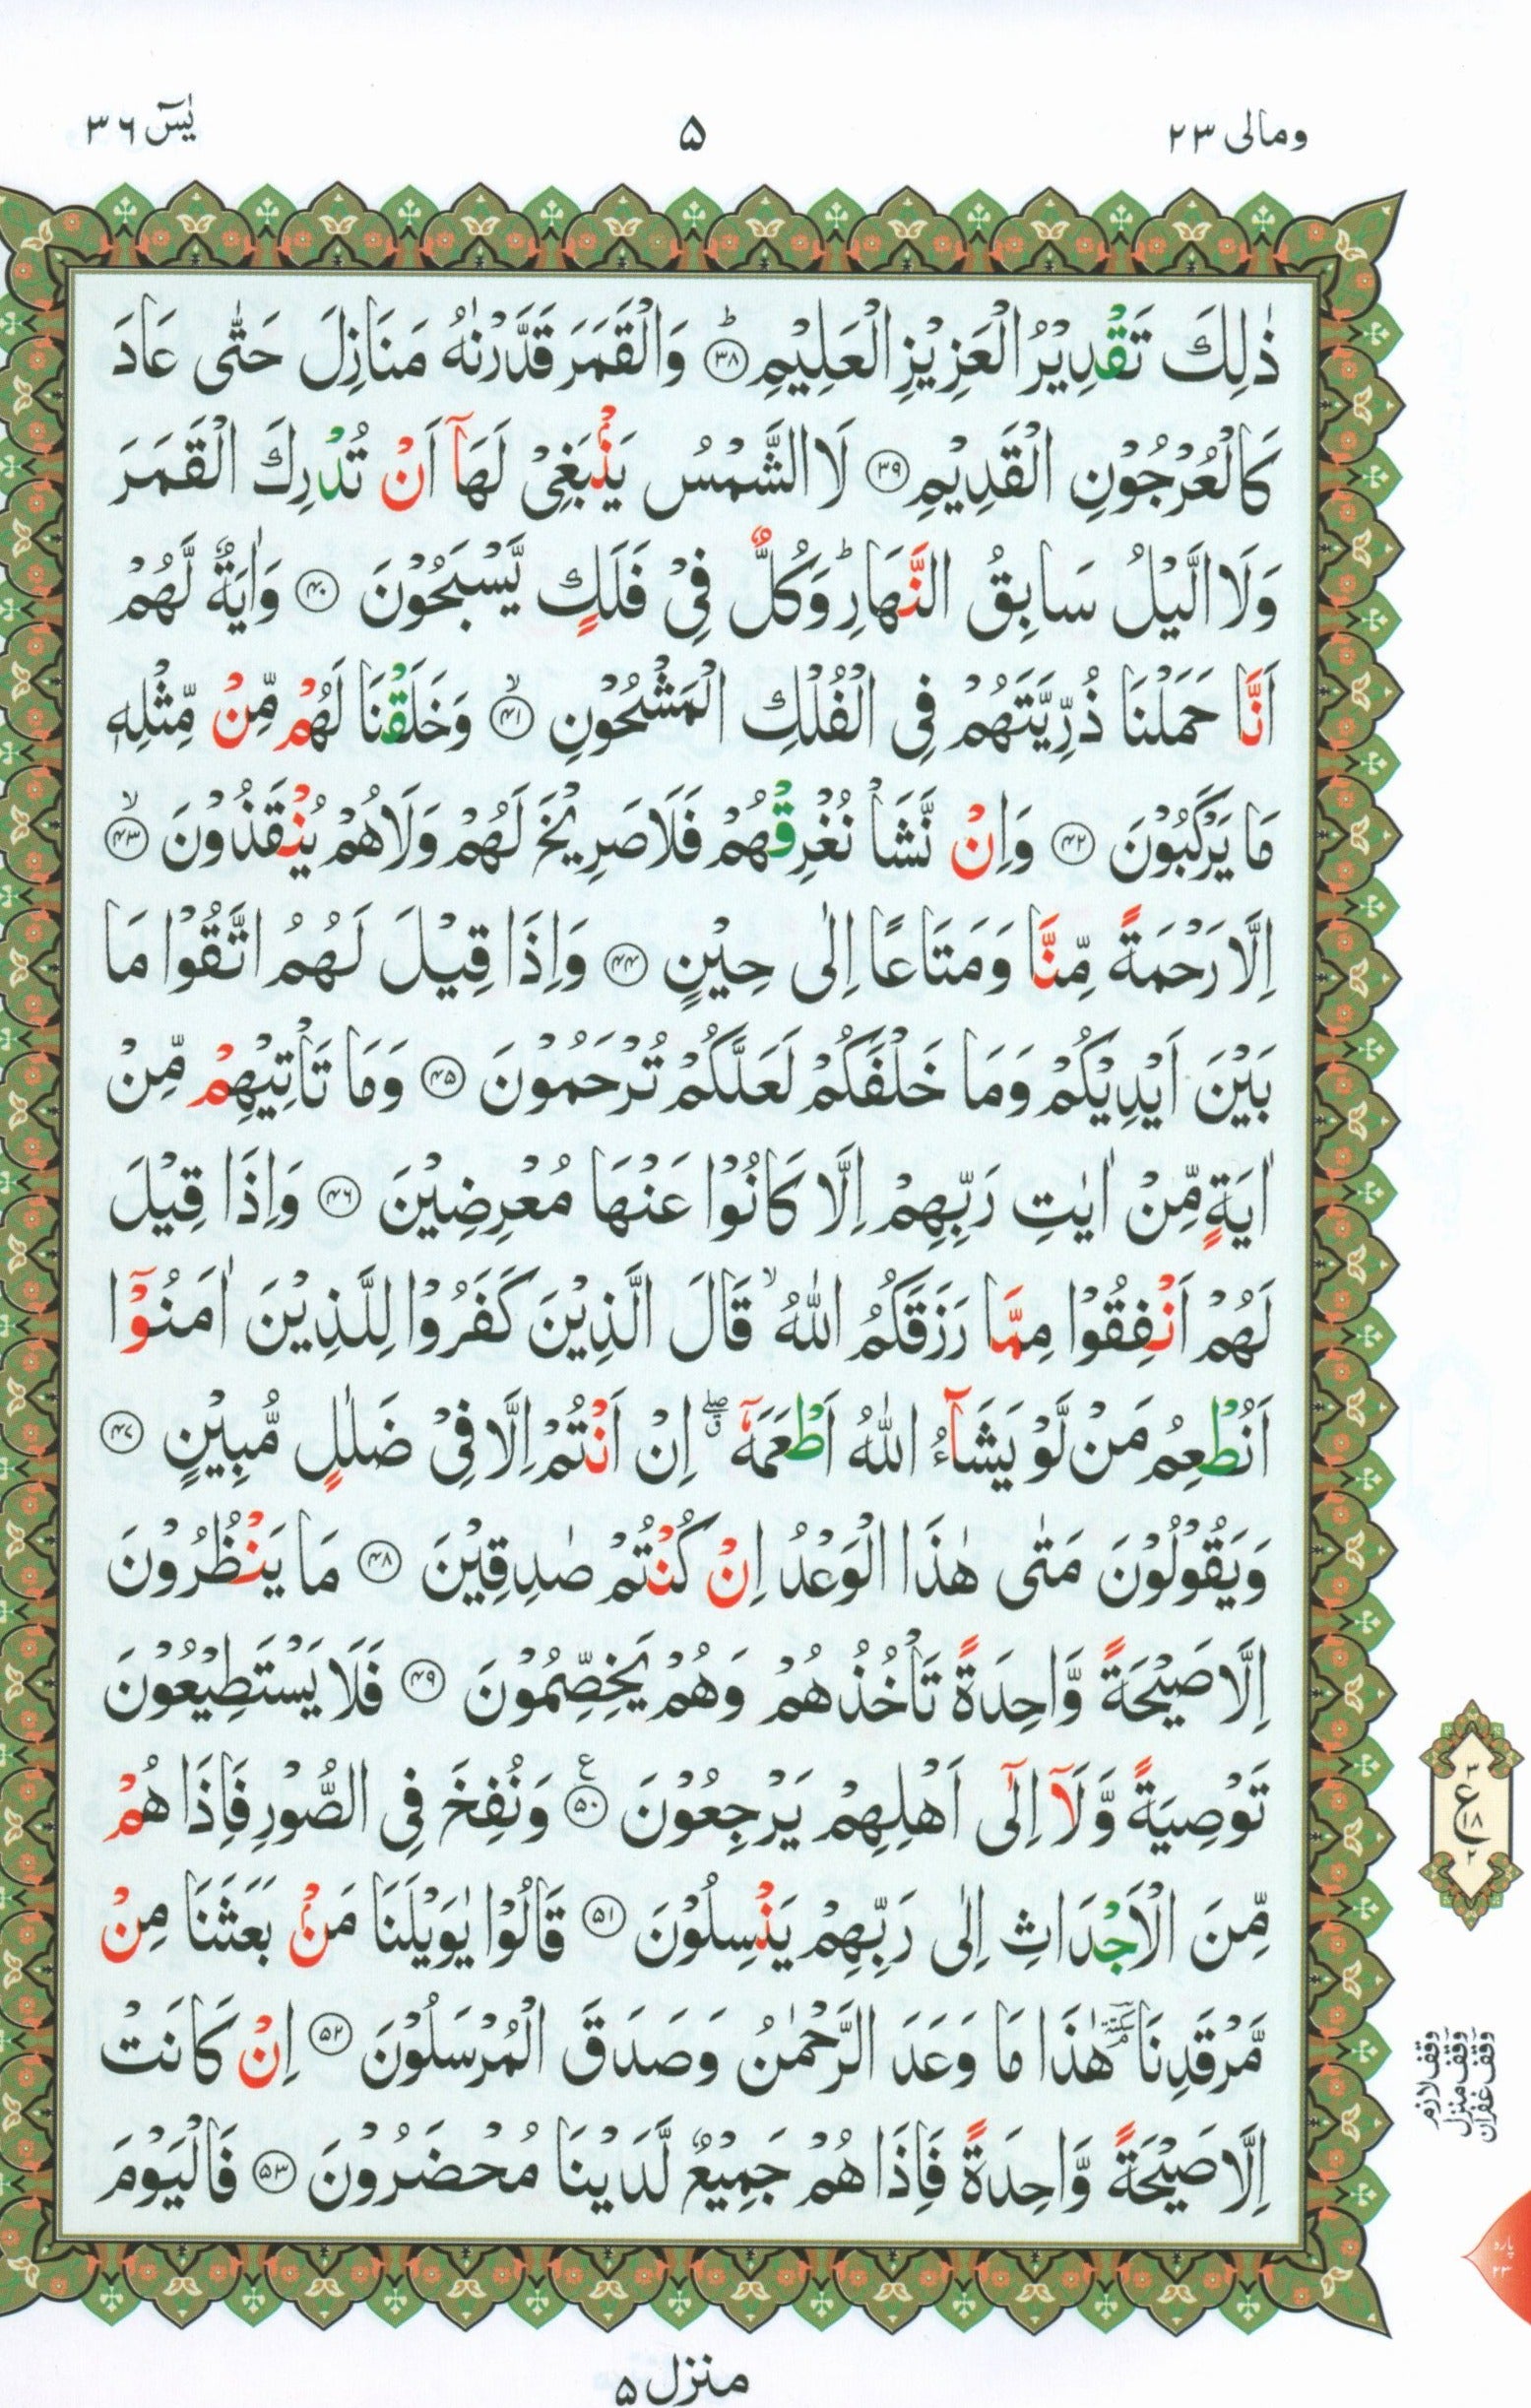 ومالی ۲۳
۵
یٰسٓ ۳۶
ذٰلِكَ تَقْدِیْرُ الْعَزِیْزِ الْعَلِیْمِ ؕ۝۳۸ وَالْقَمَرَ قَدَّرْنٰهُ مَنَازِلَ حَتّٰی عَادَ
كَالْعُرْجُوْنِ الْقَدِیْمِ ۝۳۹ لَا الشَّمْسُ یَنْۢبَغِیْ لَهَاۤ اَنْ تُدْرِكَ الْقَمَرَ
وَلَا الَّیْلُ سَابِقُ النَّهَارِ ؕ وَكُلٌّ فِیْ فَلَكٍ یَّسْبَحُوْنَ ۝۴۰ وَاٰیَةٌ لَّهُمْ
اَنَّا حَمَلْنَا ذُرِّیَّتَهُمْ فِی الْفُلْكِ الْمَشْحُوْنِ ۙ۝۴۱ وَخَلَقْنَا لَهُمْ مِّنْ مِّثْلِهٖ
مَا یَرْكَبُوْنَ ۝۴۲ وَاِنْ نَّشَاْ نُغْرِقْهُمْ فَلَا صَرِیْخَ لَهُمْ وَلَا هُمْ یُنْقَذُوْنَ ۙ۝۴۳
اِلَّا رَحْمَةً مِّنَّا وَمَتَاعًا اِلٰی حِیْنٍ ۝۴۴ وَاِذَا قِیْلَ لَهُمُ اتَّقُوْا مَا
بَیْنَ اَیْدِیْكُمْ وَمَا خَلْفَكُمْ لَعَلَّكُمْ تُرْحَمُوْنَ ۝۴۵ وَمَا تَاْتِیْهِمْ مِّنْ
اٰیَةٍ مِّنْ اٰیٰتِ رَبِّهِمْ اِلَّا كَانُوْا عَنْهَا مُعْرِضِیْنَ ۝۴۶ وَاِذَا قِیْلَ
لَهُمْ اَنْفِقُوْا مِمَّا رَزَقَكُمُ اللّٰهُ ۙ قَالَ الَّذِیْنَ كَفَرُوْا لِلَّذِیْنَ اٰمَنُوْۤا
اَنُطْعِمُ مَنْ لَّوْ یَشَآءُ اللّٰهُ اَطْعَمَهٗۤ ۖۗ اِنْ اَنْتُمْ اِلَّا فِیْ ضَلٰلٍ مُّبِیْنٍ ۝۴۷
وَیَقُوْلُوْنَ مَتٰی هٰذَا الْوَعْدُ اِنْ كُنْتُمْ صٰدِقِیْنَ ۝۴۸ مَا یَنْظُرُوْنَ
اِلَّا صَیْحَةً وَّاحِدَةً تَاْخُذُهُمْ وَهُمْ یَخِصِّمُوْنَ ۝۴۹ فَلَا یَسْتَطِیْعُوْنَ
تَوْصِیَةً وَّلَاۤ اِلٰۤی اَهْلِهِمْ یَرْجِعُوْنَ ۝۵۰ع وَنُفِخَ فِی الصُّوْرِ فَاِذَا هُمْ
مِّنَ الْاَجْدَاثِ اِلٰی رَبِّهِمْ یَنْسِلُوْنَ ۝۵۱ قَالُوْا یٰوَیْلَنَا مَنْۢ بَعَثَنَا مِنْ
مَّرْقَدِنَا ٚۘ هٰذَا مَا وَعَدَ الرَّحْمٰنُ وَصَدَقَ الْمُرْسَلُوْنَ ۝۵۲ اِنْ كَانَتْ
اِلَّا صَیْحَةً وَّاحِدَةً فَاِذَا هُمْ جَمِیْعٌ لَّدَیْنَا مُحْضَرُوْنَ ۝۵۳ فَالْیَوْمَ
۳
ع
۱۸
۲
وقف لازم
وقف منزل
وقف غفران
پارہ
۲۳
منزل ۵